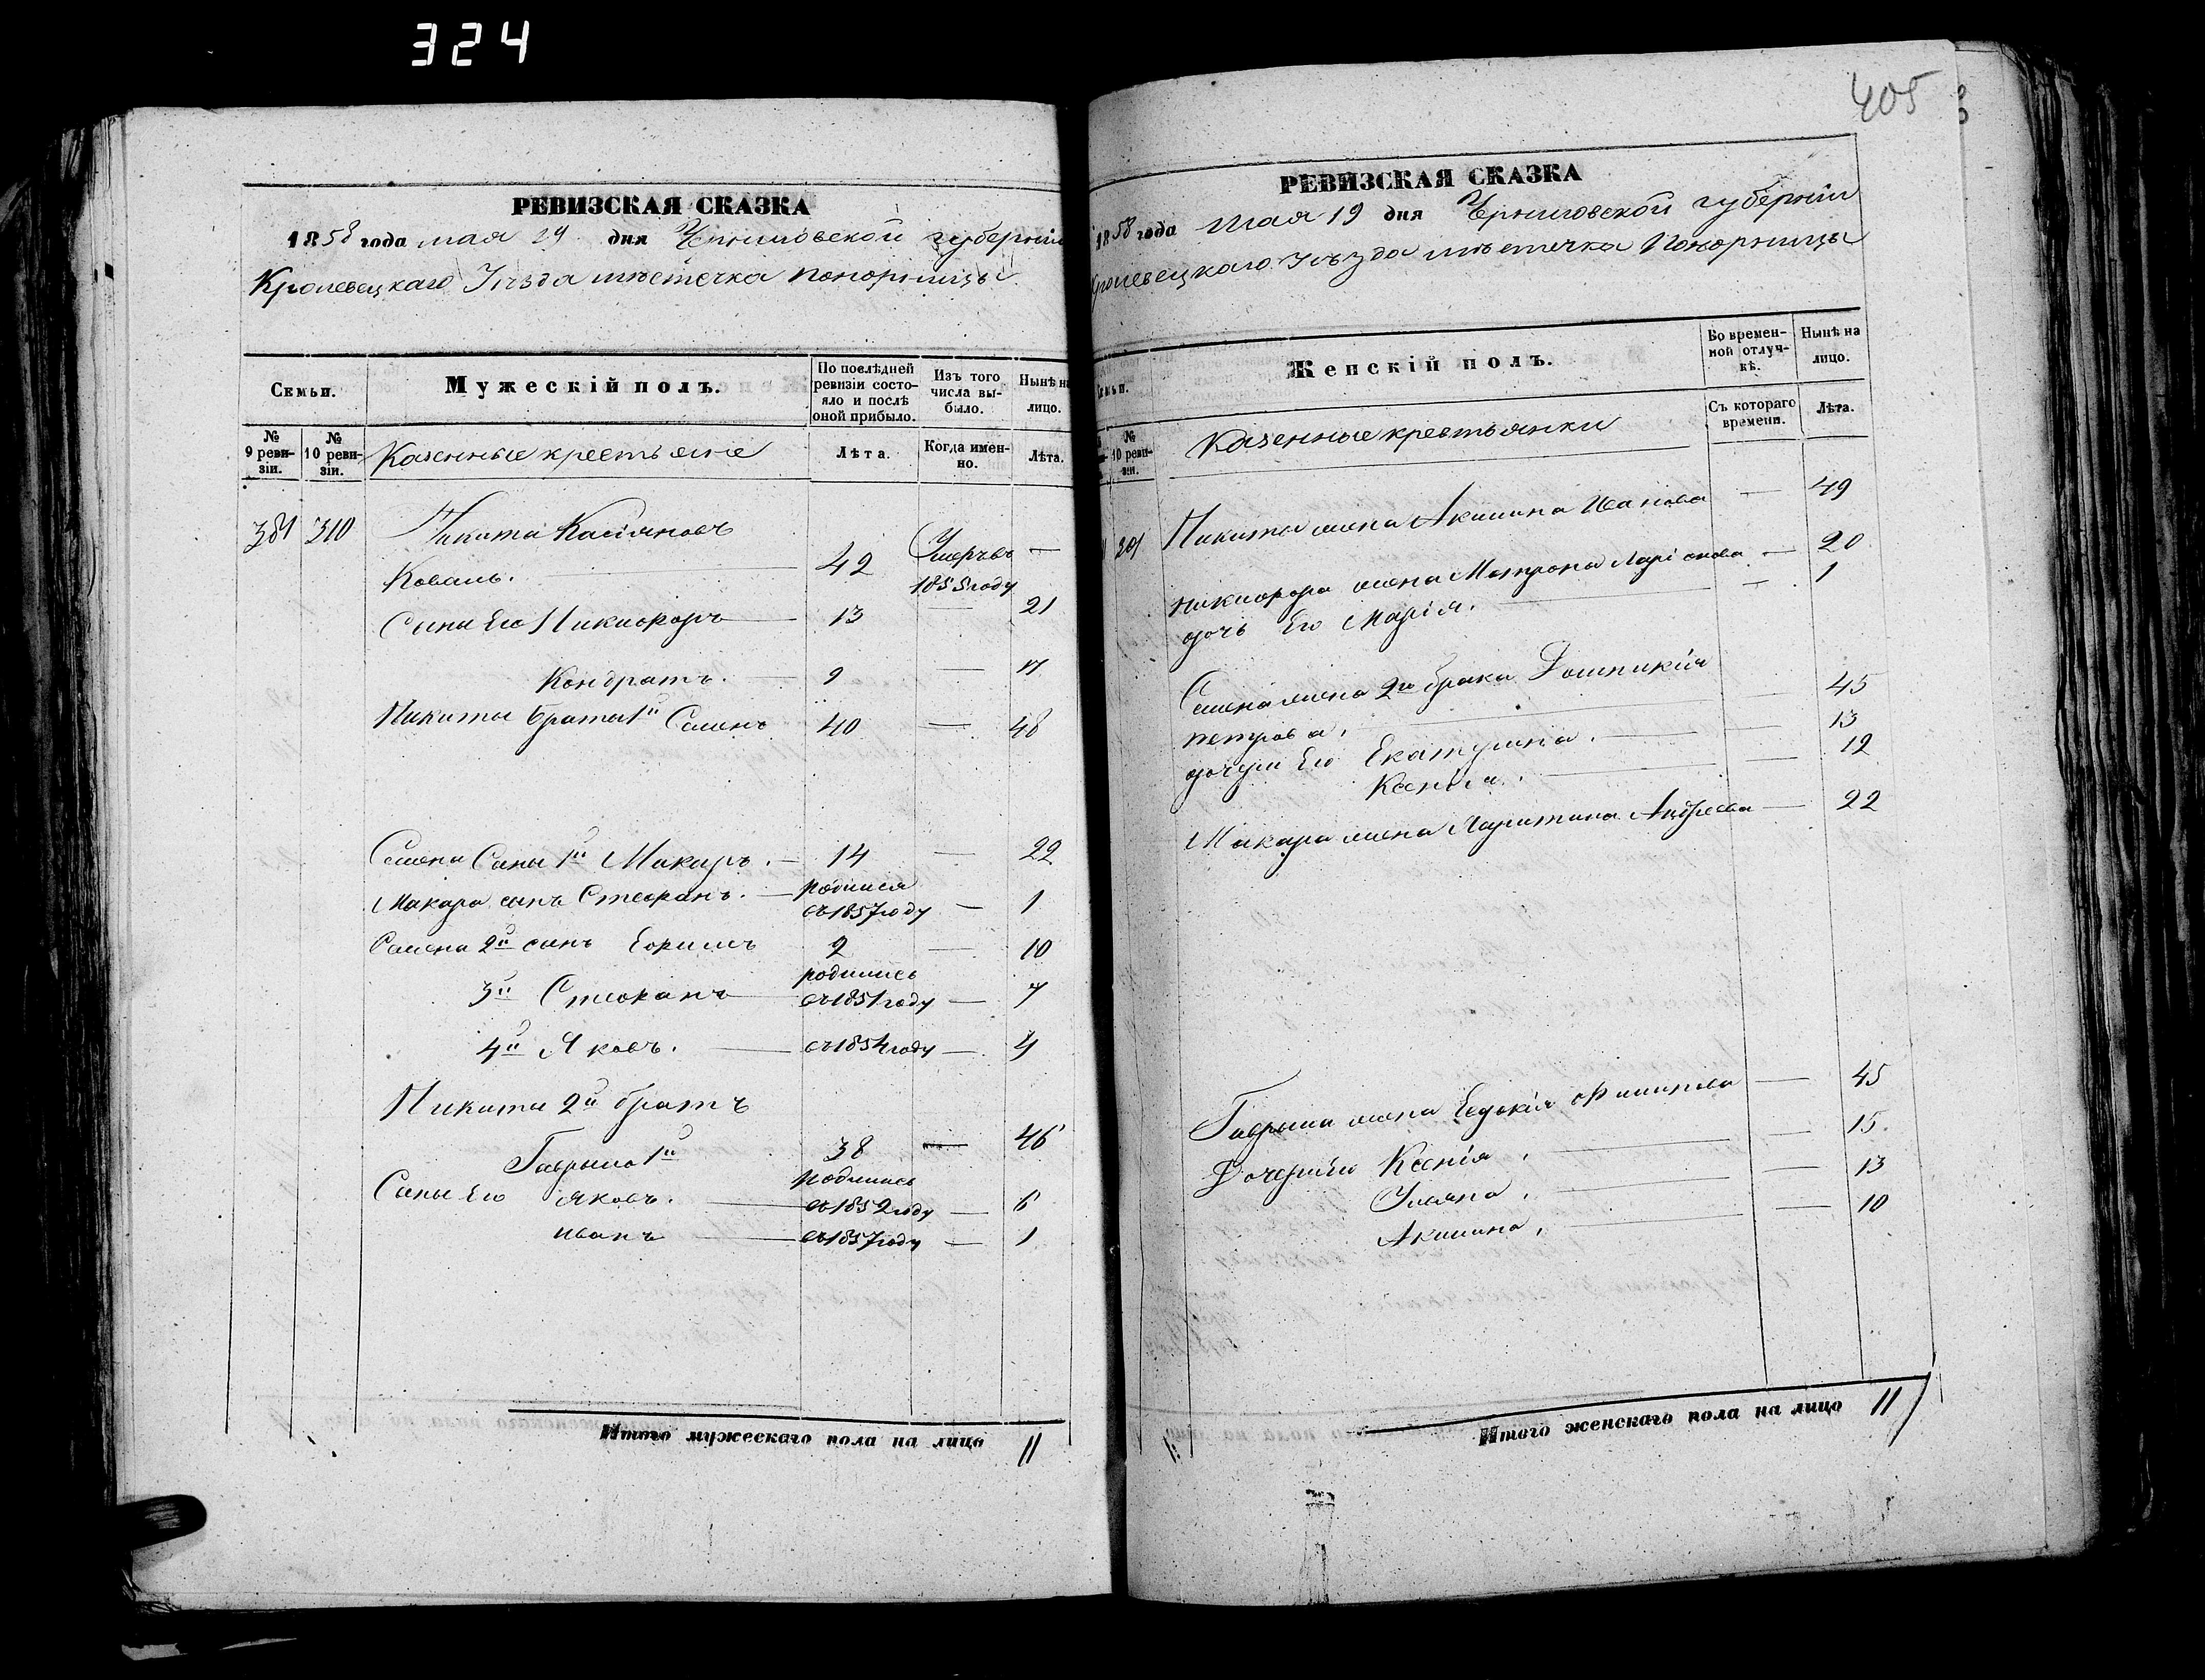 324
405
РЕВИЗСКАЯ СКАЗКА
1858 года мая 19 дня Черниговской губерніи
Кролевецкаго Уѣзда мѣстечка Понорницы
Семьи.
Мужескій полъ.
По послѣдней ревизіи состояло и послѣ оной прибыло.
Изъ того числа выбыло.
Нынѣ на лицо.
№ 9 ревизіи.
№ 10 ревизіи.
Казенные крестьяне
Лѣта.
Когда именно.
Лѣта.
381 310 Никита Касіяновъ
Коваль. 42 Умеръ въ 1855 году —
Сыны Его Никифоръ 13 — 21
Кондратъ. 9 — 17
Никиты братья 1й Семенъ 40 — 48
Семена Сыны 1й Макаръ. 14 — 22
Макара сынъ Стефанъ. родился въ 1857 году — 1
Семена 2й сынъ Ефимъ 2 — 10
3й Стефанъ родились въ 1851 году — 7
4й Яковъ. въ 1854 году — 4
Никиты 2й братъ
Гаврыло 1й 38 — 46
Сыны Его Яковъ. родились въ 1852 году — 6
Иванъ въ 1857 году — 1
Итого мужескаго пола на лицо 11
РЕВИЗСКАЯ СКАЗКА
1858 года Мая 19 дня Черниговской губерніи
Кролевецкаго Уѣзда мѣстечка Понорницы
Семьи.
Женскій полъ.
Во временной отлучкѣ.
Нынѣ на лицо.
№ 10 ревизіи.
Казенные крестьянки
Съ котораго времени.
Лѣта.
Никиты жена Акилина Иванова — 49
Никифора жена Матрона Ларіонова — 20
дочь Его Марія. — 1
Семена жена 2го брака Домникія
Петрова. 45
дочери Его Екатерина. — 13
Ксенія. — 12
Макара жена Харитина Андреева — 22
Гаврыла жена Евдокія Филипова — 45
Дочери Его Ксенія, — 15
Ульяна, — 13
Акилина, — 10
Итого женскаго пола на лицо 11